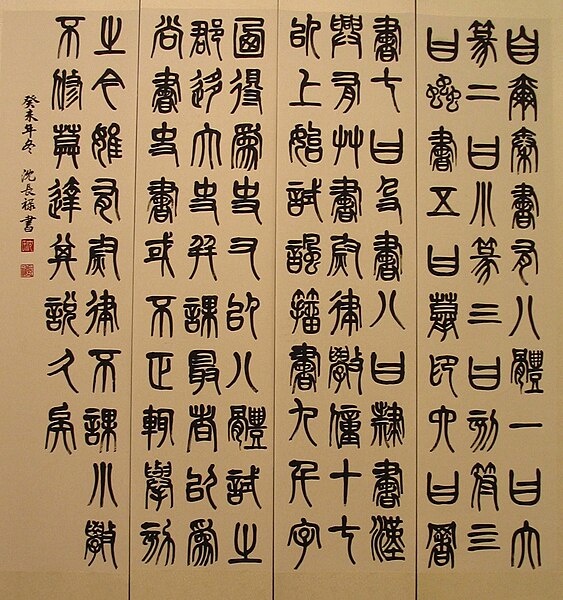 自爾秦書有八體一曰大
篆二曰小篆三曰刻符三
曰蟲書五曰摹印六曰署
書七曰殳書八曰隸書漢
興有艸書尉律學僮十七
以上始試諷籀書九千字
乃得爲史又以八體試之
郡移大史并課最者以爲
尚書史書或不正輒舉劾
之今雖有尉律不課小學
不修莫達其說久矣
癸未年冬 沈長祿書